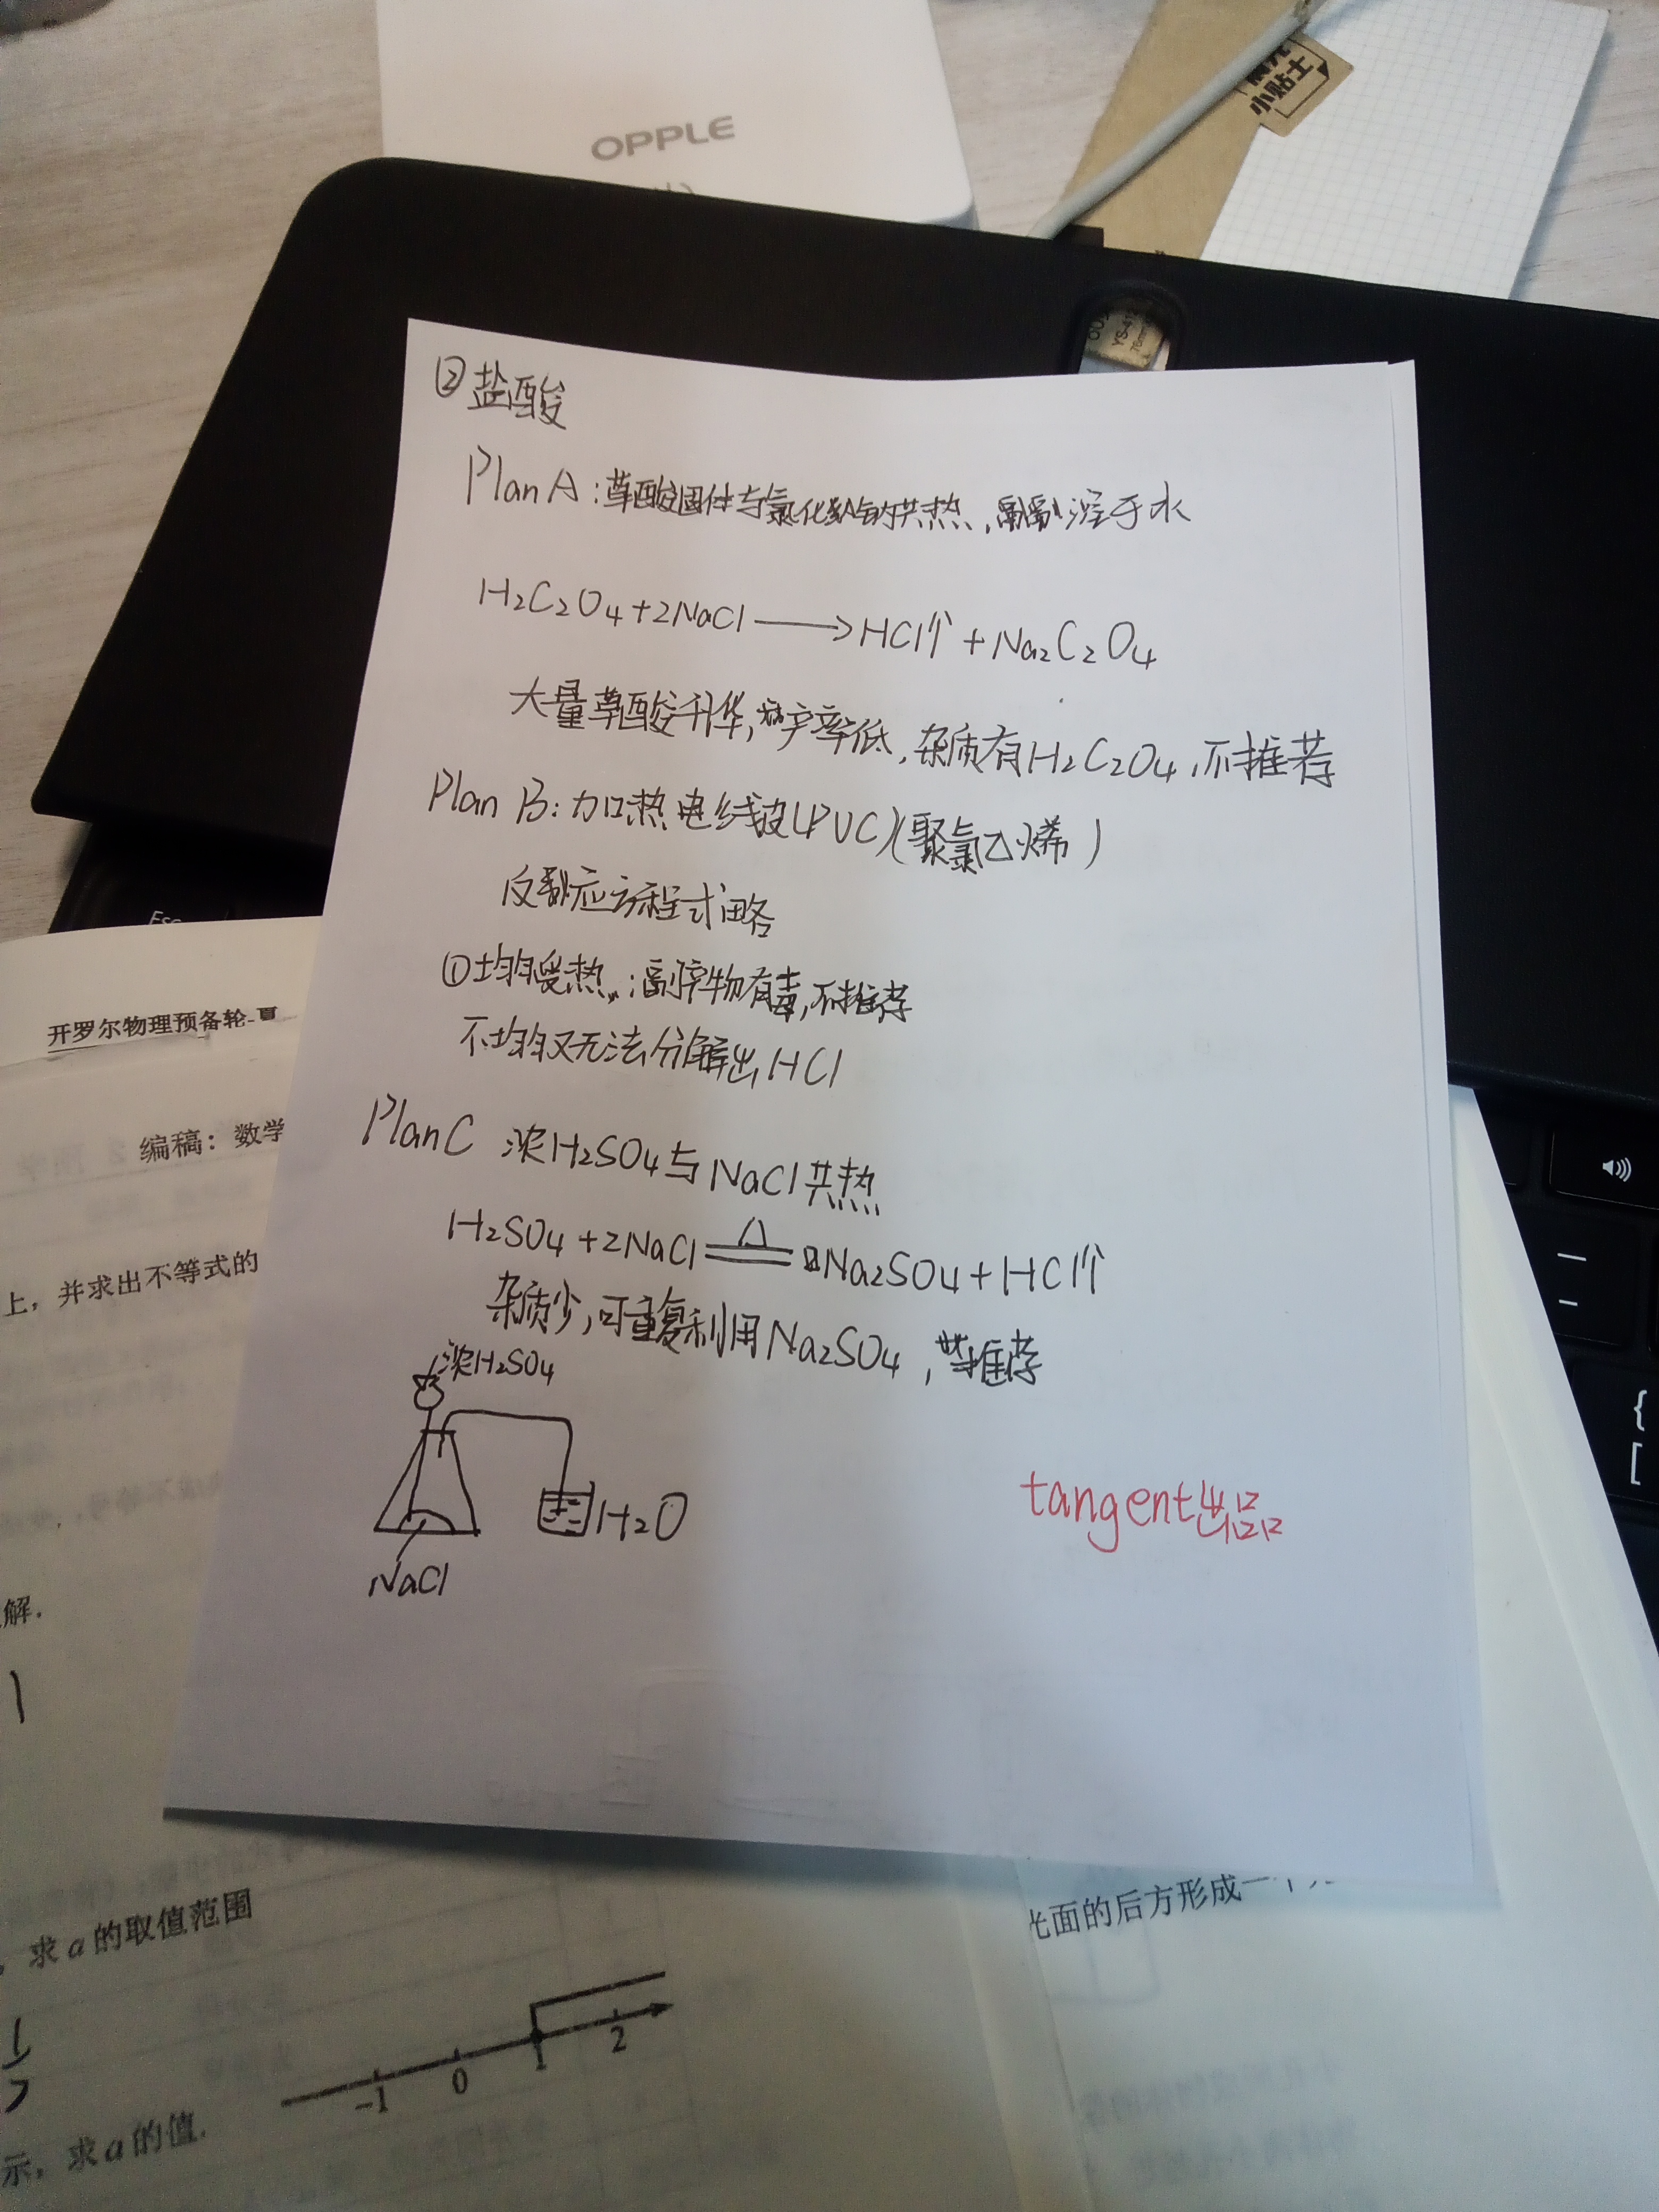 OPPLE
小贴士
YS-412
②盐酸
Plan A:草酸固体与氯化钠的共热,溶于水
H₂C₂O₄+2NaCl⟶HCl↑+Na₂C₂O₄
大量草酸升华,产率低,杂质有H₂C₂O₄,不推荐
Plan B:加热电线皮(PVC)(聚氯乙烯)
反应方程式略
①均匀受热:副产物有毒,不推荐
不均匀又无法分解出HCl
Plan C 浓H₂SO₄与NaCl共热
H₂SO₄+2NaCl≜Na₂SO₄+HCl↑
杂质少,可重复利用Na₂SO₄,推荐
浓H₂SO₄
H₂O
NaCl
tangent出品
Esc
开罗尔物理预备轮-夏
编稿:数学
上,并求出不等式的
解.
1
,求a的取值范围
-1 0 1 2
示,求a的值.
光面的后方形成一个
{
[